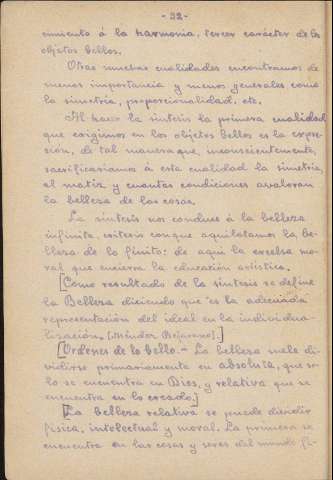 - 32 -
cimiento á la harmonía, tercer carácter de los
objetos bellos.
Otras muchas cualidades encontramos de
menos importancia y menos generales como
la simetría, proporcionalidad, etc.
Al hacer la síntesis la primera cualidad
que exigimos en los objetos bellos es la expre-
sión, de tal manera que, inconscientemente,
sacrificaríamos á esta cualidad la simetría,
el matiz y cuantas condiciones avaloran
la belleza de las cosas.
La síntesis nos conduce á la belleza
infinita, criterio con que aquilatamos la be-
lleza de lo finito: de aquí la excelsa mo-
ral que encierra la educación artística.
[Como resultado de la síntesis se define
la Belleza diciendo que "es la adecuada
representación del ideal en la individua-
lización. (Méndez Bejarano).]
[Órdenes de lo bello.- La belleza suele di-
vidirse primariamente en absoluta, que só-
lo se encuentra en Dios, y relativa que se
encuentra en lo creado.]
[La belleza relativa se puede dividir
física, intelectual y moral. La primera se
encuentra en las cosas y seres del mundo fí-